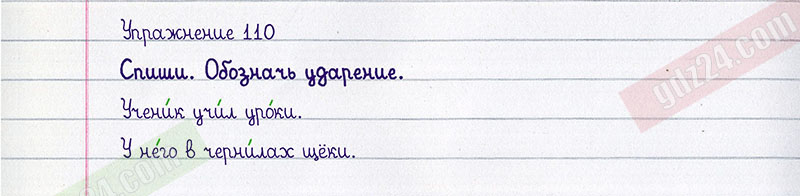 Упражнение 110
Спиши. Обозначь ударение.
Учени́к учи́л уро́ки.
У не́го в черни́лах щёки.
gdz24.com